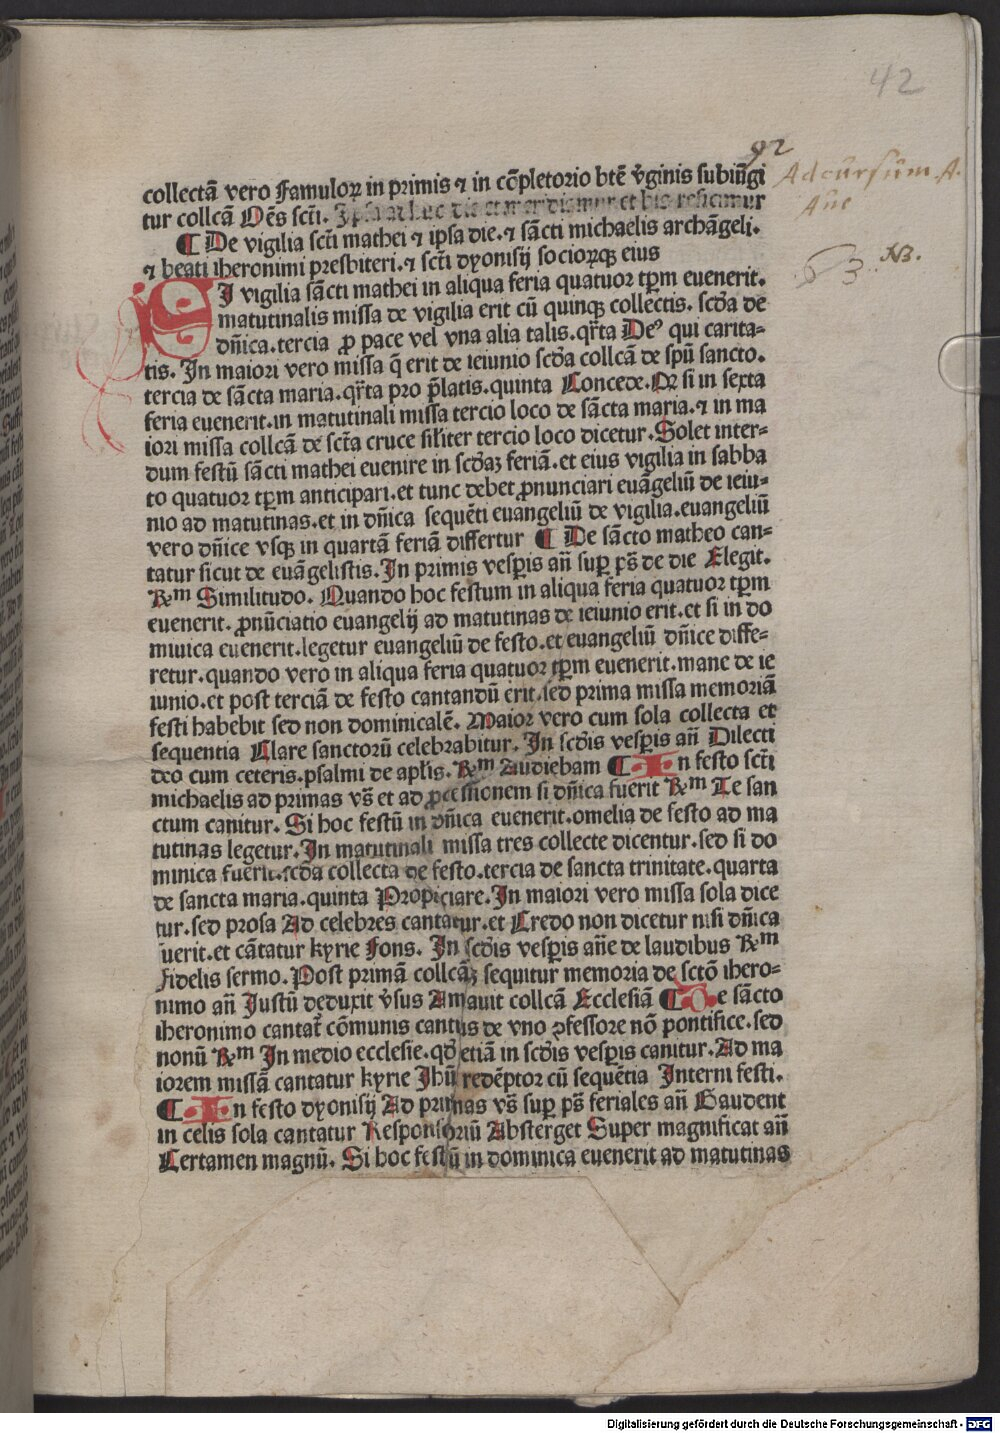 42
92
collectā vero Famuloꝝ in primis ⁊ in cōpletorio btē v̓ginis subiūgi
tur collcā Oēs sct̄i. Ipsa adhuc die et meridiamur et bis reficimur
Ad cursum A.
Añe
¶ De vigilia sct̄i mathei ⁊ ipsa die. ⁊ sācti michaelis archāgeli.
⁊ beati iheronimi presbiteri. ⁊ sct̄i dyonisij socioꝝqꝫ eius
63 . NB.
SI vigilia sācti mathei in aliqua feria quatuor tꝑm euenerit.
matutinalis missa de vigilia erit cū quinqꝫ collectis. scd̄a de
dn̄ica. tercia ꝓ pace vel vna alia talis. qr̄ta Deꝰ qui carita-
tis. In maiori vero missa q̄ erit de ieiunio scd̄a collcā de spū sancto.
tercia de sācta maria. qr̄ta pro p̄latis. quinta Concede. Qꝛ si in sexta
feria euenerit. in matutinali missa tercio loco de sācta maria. ⁊ in ma
iori missa collcā de sct̄a cruce sil̓iter tercio loco dicetur. Solet inter-
dum festū sācti mathei euenire in scd̄aꝫ feriā. et eius vigilia in sabba
to quatuor tꝑm anticipari. et tunc debet ꝓnunciari euāgeliū de ieiu-
nio ad matutinas. et in dn̄ica sequēti euangeliū de vigilia. euangeliū
vero dn̄ice vsqꝫ in quartā feriā differtur ¶ De sācto matheo can-
tatur sicut de euāgelistis. In primis vesꝑis añ suꝑ ps̄ de die Elegit.
℞m Similitudo. Quando hoc festum in aliqua feria quatuor tꝑm
euenerit. ꝓnūciatio euangelij ad matutinas de ieiunio erit. et si in do
minica euenerit. legetur euangeliū de festo. et euangeliū dn̄ice diffe-
retur. quando vero in aliqua feria quatuor tꝑm euenerit. mane de ie
iunio. et post terciā de festo cantandū erit. sed prima missa memoriā
festi habebit sed non dominicalē. Maior vero cum sola collecta et
sequentia Clare sanctorū celebrabitur. In scd̄is vesꝑis añ Dilecti
deo cum ceteris. psalmi de apl̓is. ℞m Audiebam ¶ In festo sct̄i
michaelis ad primas vs̄ et ad ꝓcessionem si dn̄ica fuerit ℞m Te san
ctum canitur. Si hoc festū in dn̄ica euenerit. omelia de festo ad ma
tutinas legetur. In matutinali missa tres collecte dicentur. sed si do
minica fuerit. scd̄a collecta de festo. tercia de sancta trinitate. quarta
de sancta maria. quinta Propiciare. In maiori vero missa sola dice
tur. sed prosa Ad celebres cantatur. et Credo non dicetur nisi dn̄ica
fuerit. et cātatur kyrie Fons. In scd̄is vesꝑis añe de laudibus ℞m
Fidelis sermo. Post primā collcāꝫ sequitur memoria de sctō ihero-
nimo añ Justū deduxit v̓sus Amauit collcā Ecclesiā ¶ De sācto
iheronimo cantat᷑ cōmunis cantus de vno ꝓfessore nō pontifice. sed
nonū ℞m In medio ecclesie. qd̓ etiā in scd̄is vesꝑis canitur. Ad ma
iorem missā cantatur kyrie Jhū redēptor cū sequētia Interni festi.
¶ In festo dyonisij Ad primas vs̄ suꝑ ps̄ feriales añ Gaudent
in celis sola cantatur Responsoriū Absterget Super magnificat añ
Certamen magnū. Si hoc festū in dominica euenerit ad matutinas
Digitalisierung gefördert durch die Deutsche Forschungsgemeinschaft - DFG